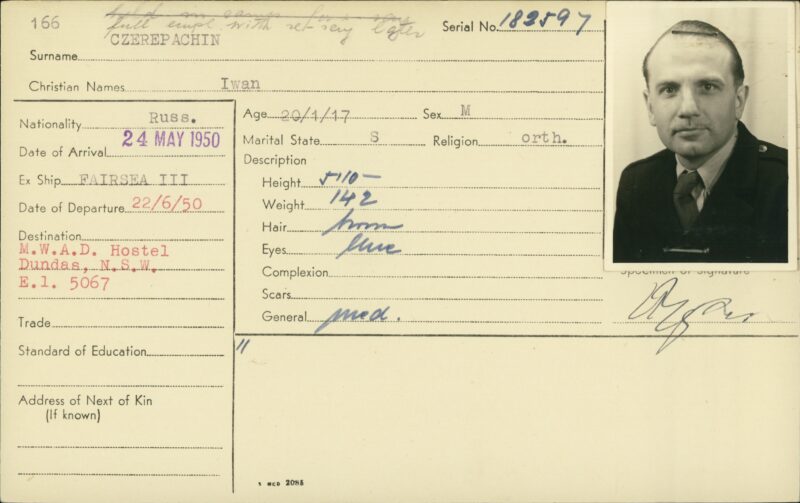 166
full empl. with ret serv later
Serial No. 182597
CZEREPACHIN
Surname
Christian Names Iwan
Nationality Russ.
Date of Arrival 24 MAY 1950
Ex Ship FAIRSEA III
Date of Departure 22/6/50
Destination
M.W.A.D. Hostel
Dundas, N.S.W.
E.1. 5067
Trade
Standard of Education
Address of Next of Kin
(If known)
Age 20/1/17 Sex M
Marital State S Religion orth.
Description
Height 5'10-
Weight 142
Hair brown
Eyes blue
Complexion
Scars
General med.
Specimen of Signature
11
5 MCD 2085